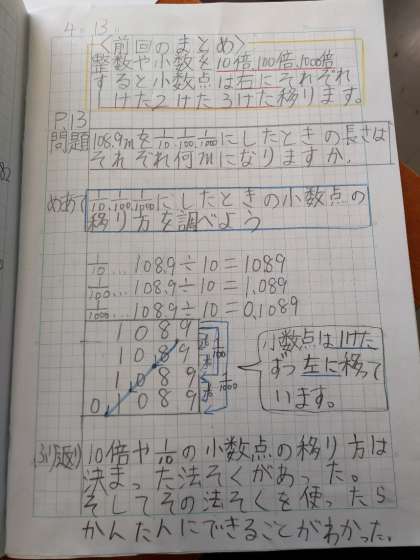 4. 13
<前回のまとめ>
整数や小数を10倍、100倍、1000倍
すると小数点は右にそれぞれ
1けた2けた3けた移ります。
P.13
問題 108.9mを1/10、1/100、1/1000にしたときの長さは
それぞれ何mになりますか。
めあて 1/10、1/100、1/1000にしたときの小数点の
移り方を調べよう
1/10…108.9÷10=10.89
1/100…108.9÷10=1.089
1/1000…108.9÷10=0.1089
1 0 8 9
1 0 8 9
1 0 8 9
0 1 0 8 9
1/10
1/100
1/10
1/1000
1/10
小数点は1けた
ずつ左に移って
います。
ふり返り 10倍や1/10の小数点の移り方は
決まった法そくがあった。
そしてその法そくを使ったら
かんたんにできることがわかった。